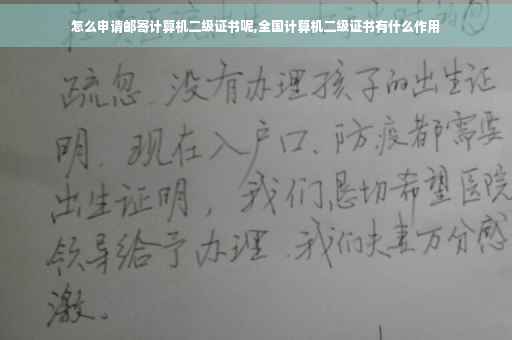 怎么申请邮寄计算机二级证书呢,全国计算机二级证书有什么作用
疏忽、没有办理孩子的出生证
明、现在入户口、防疫都需要
出生证明，我们恳切希望医院
领导给予办理、我们夫妻万分感
激。